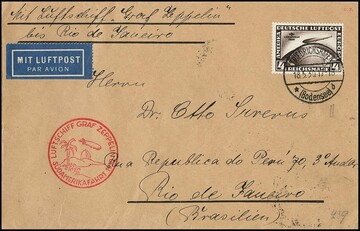 Mit Luftschiff "Graf Zeppelin"
bis Rio de Janeiro
MIT LUFTPOST
PAR AVION
DEUTSCHE LUFTPOST
4 REICHSMARK 4
FRIEDRICHSHAFEN
(Bodensee)
Herrn
Dr. Otto
LUFTSCHIFF GRAF ZEPPELIN
SÜDAMERIKAFAHRT
Rua Republica do Perú 70, 3º Andar
Rio de Janeiro
(Brasilien)